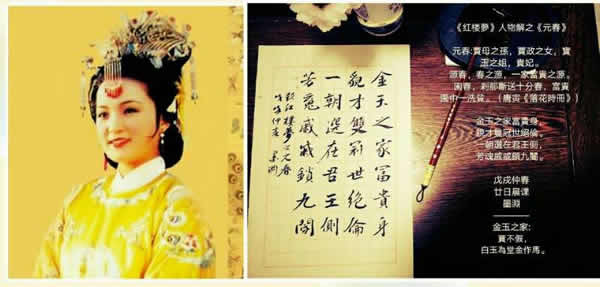 金玉之家富貴身
貌才雙冠世絕倫
一朝選在君王側
芳魂戚戚鎖九閽
紅樓夢之元春
戊戌仲春 墨淵
《红楼夢》人物解之《元春》
元春:賈母之孫，賈政之女，寶
玉之姐，貴妃。
源春，春之源，一家富貴之源。
園春，刹那斷送十分春，富貴
園中一洗貧。（唐寅《落花時冊》）
金玉之家富貴身，
貌才雙冠世絕倫。
一朝選在君王側，
芳魂戚戚鎖九閽。
戊戌仲春
廿日晨课
墨淵
金玉之家:
賈不假，
白玉為堂金作馬。